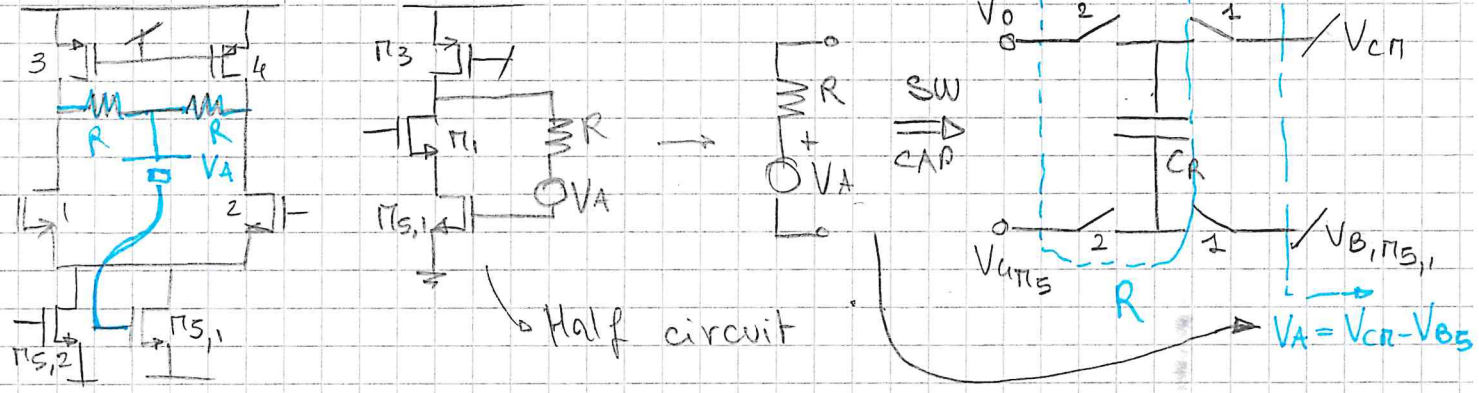 3
4
R
R
VA
1
2
M5,2
M5,1
M3
M1
R
VA
M5,1
Half circuit
R
+
VA
SW
CAP
Vo
2
1
VCM
CR
VGM5
2
1
VB,M5,1
R
VA = VCM - VB5